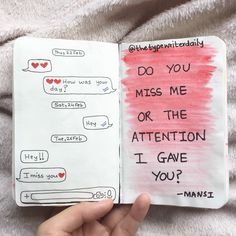 Thu, 22 Feb
How was your
day?
Sat, 24 Feb
Hey
Tue, 27 Feb
Hey!!
I miss you
+
@thetypewriterdaily
DO YOU
MISS ME
OR THE
ATTENTION
I GAVE
YOU?
-MANSI